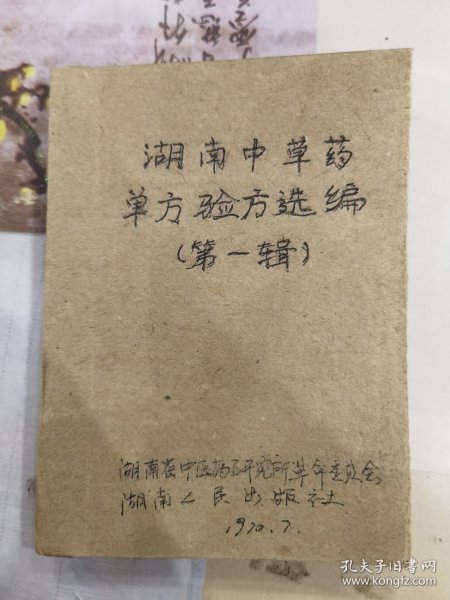 湖南中草药
单方验方选编
(第一辑)
湖南省中医药研究所革命委员会
湖南人民出版社
1970.7.
孔夫子旧书网
www.kongfz.com